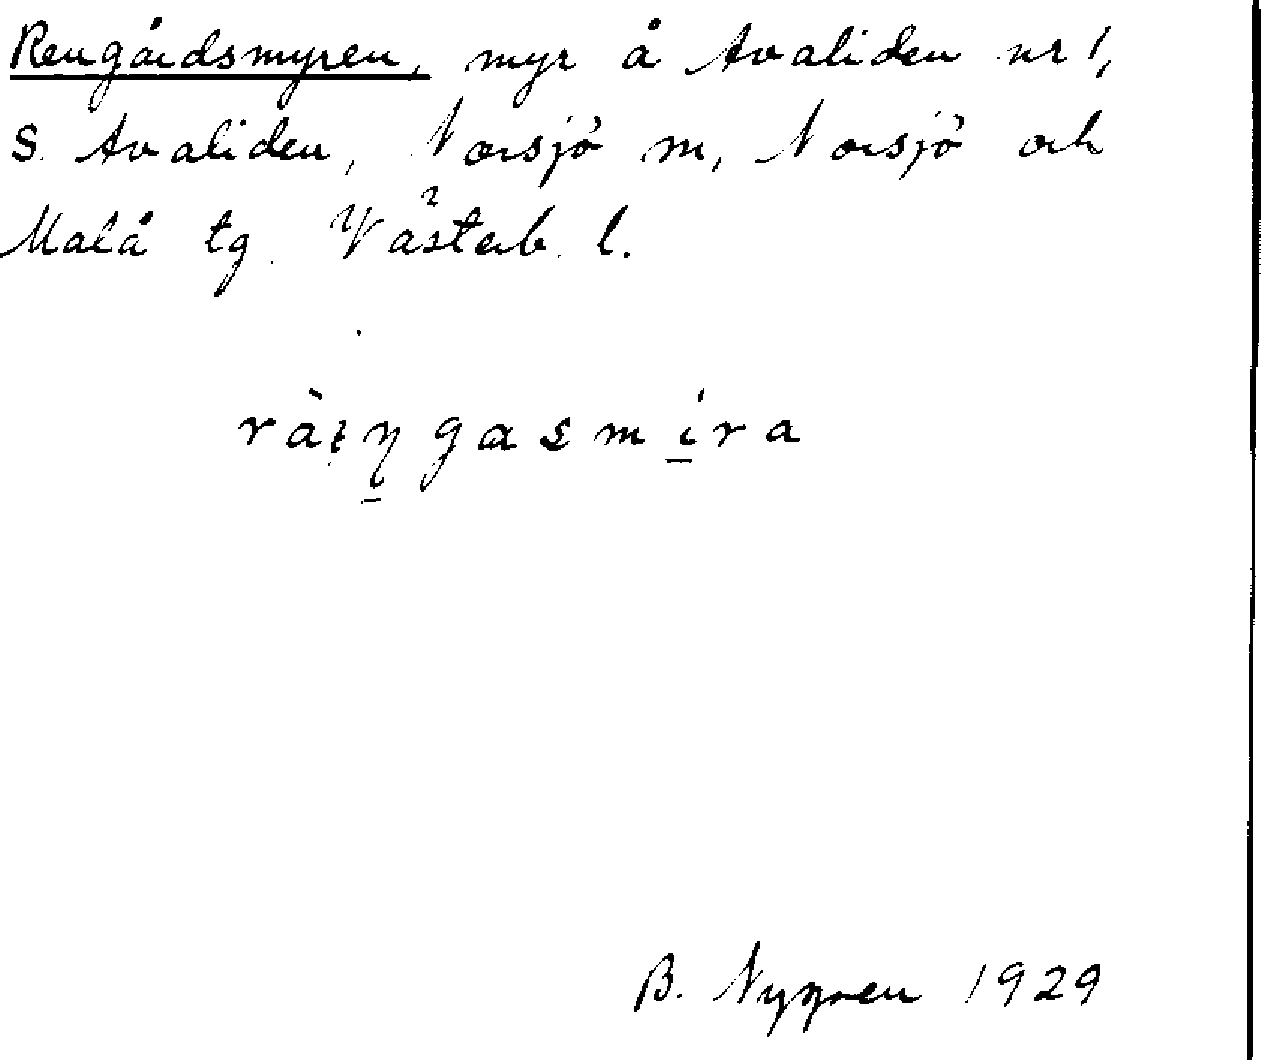 Rengårdsmyren, myr å Avaliden nr 1,
S. Avaliden, Norsjö m, Norsjö och
Malå tg. Västerb. l.
ràŧŋgasmíra
B. Nygren 1929